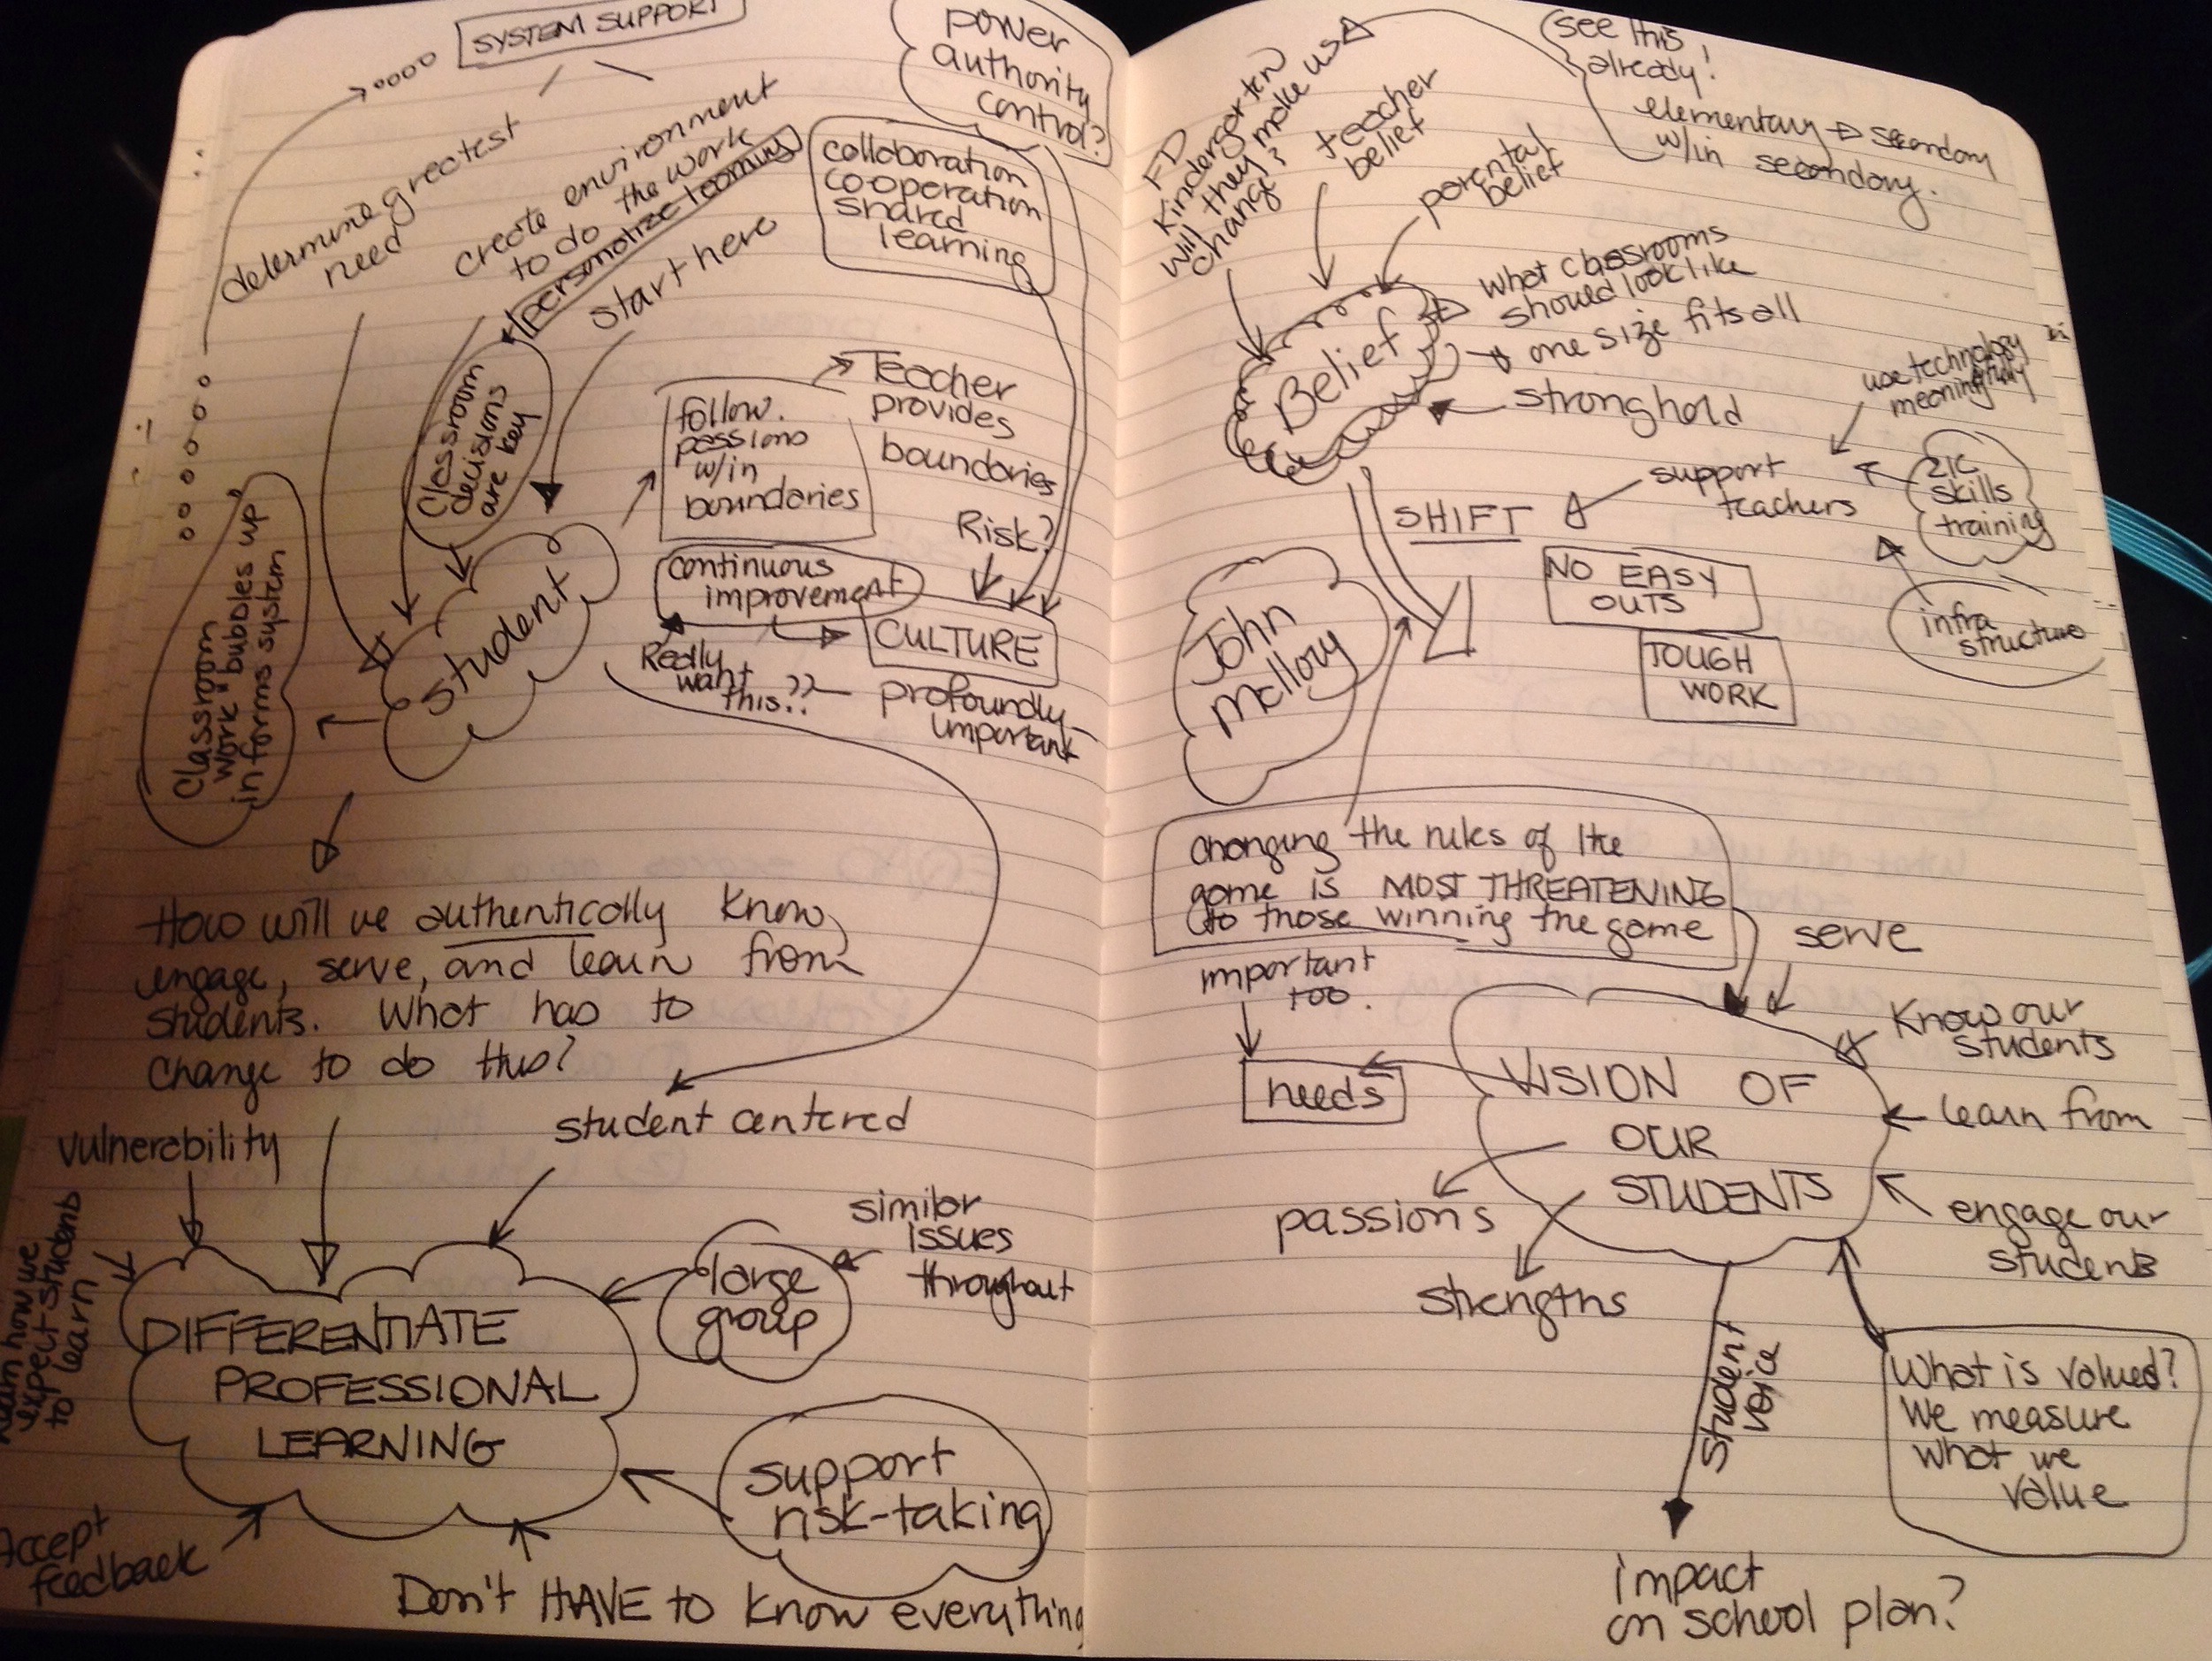 SYSTEM SUPPORT
power
authority
control?
determine greatest
need
create environment
to do the work
personalize learning
start here
collaboration
co-operation
shared
learning
Classroom
decisions
are key
follow
passions
w/in
boundaries
Teacher
provides
boundaries
Risk?
continuous
improvement
CULTURE
Really
want
this??
profoundly
important
student
Classroom
work "bubbles up"
informs system
How will we authentically know,
engage, serve, and learn from
students. What has to
change to do this?
vulnerability
student centered
learn how we
expect students
to learn
similar
issues
throughout
large
group
DIFFERENTIATE
PROFESSIONAL
LEARNING
support
risk-taking
Accept
feedback
Don't HAVE to know everything
FD
Kindergarten
will they make us
change?
teacher
belief
parental
belief
(see this
already!
elementary → secondary
w/in secondary.
Belief
What classrooms
should look like
one size fits all
stronghold
use technology
meaningfully
21C
skills
training
support
teachers
SHIFT
NO EASY
OUTS
TOUGH
WORK
infra
structure
John
Mallory
changing the rules of the
game is MOST THREATENING
to those winning the game
important
too.
needs
serve
Know our
students
VISION OF
OUR
STUDENTS
learn from
engage our
students
passions
strengths
student
voice
What is valued?
We measure
what we
value
impact
on school plan?